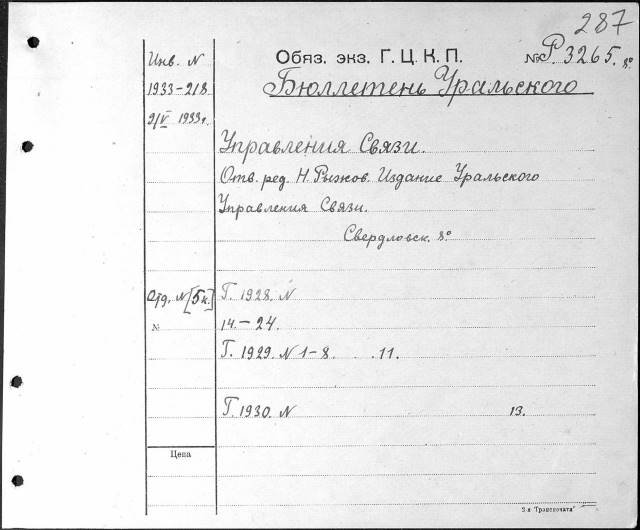 287
Инв. N
Обяз. экз. Г. Ц. К. П.
№ Р. 3265. 8°
1933-218
Бюллетень Уральского
2/V 1933г.
Управления Связи.
Отв. ред. Н. Рыжов. Издание Уральского
Управления Связи.
Свердловск. 8°
Отд. N [5к.]
Г. 1928. N
№
14.-24.
Г. 1929. N 1-8. . .11.
Г. 1930. N 13.
Цена
"Транспечати"